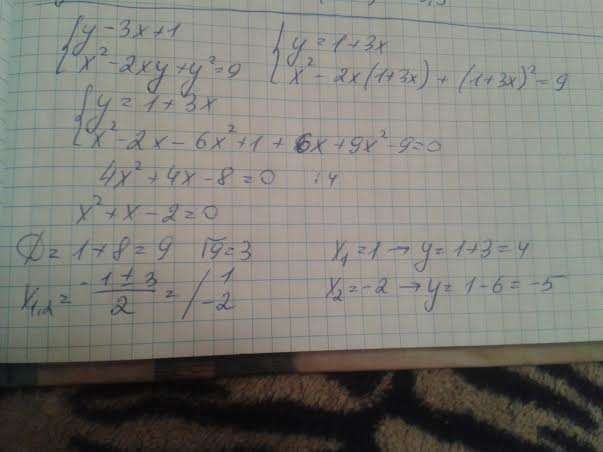 {y - 3x + 1 {y = 1 + 3x
{x² - 2xy + y² = 9 {x² - 2x(1 + 3x) + (1 + 3x)² = 9
{y = 1 + 3x
{x² - 2x - 6x² + 1 + 6x + 9x² - 9 = 0
4x² + 4x - 8 = 0 :4
x² + x - 2 = 0
D = 1 + 8 = 9 √9 = 3 x₁ = 1 → y = 1 + 3 = 4
x₁,₂ = (-1 ± 3)/2 = / 1 x₂ = -2 → y = 1 - 6 = -5
-2